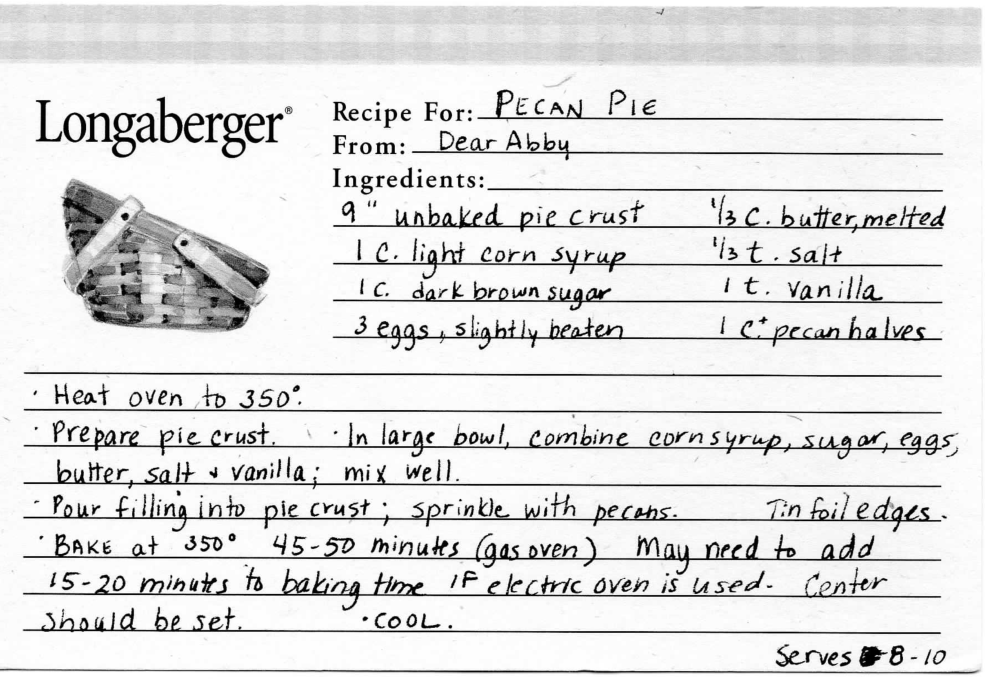 Longaberger®
Recipe For: PECAN PIE
From: Dear Abby
Ingredients:
9" unbaked pie crust 1/3 C. butter, melted
1 C. light corn syrup 1/3 t. salt
1 C. dark brown sugar 1 t. vanilla
3 eggs, slightly beaten 1 C.+ pecan halves
· Heat oven to 350°.
· Prepare pie crust. · In large bowl, combine corn syrup, sugar, eggs,
butter, salt & vanilla; mix well.
· Pour filling into pie crust; sprinkle with pecans. Tin foil edges.
· BAKE at 350° 45-50 minutes (gas oven) May need to add
15-20 minutes to baking time IF electric oven is used. Center
should be set. · COOL.
Serves 8-10